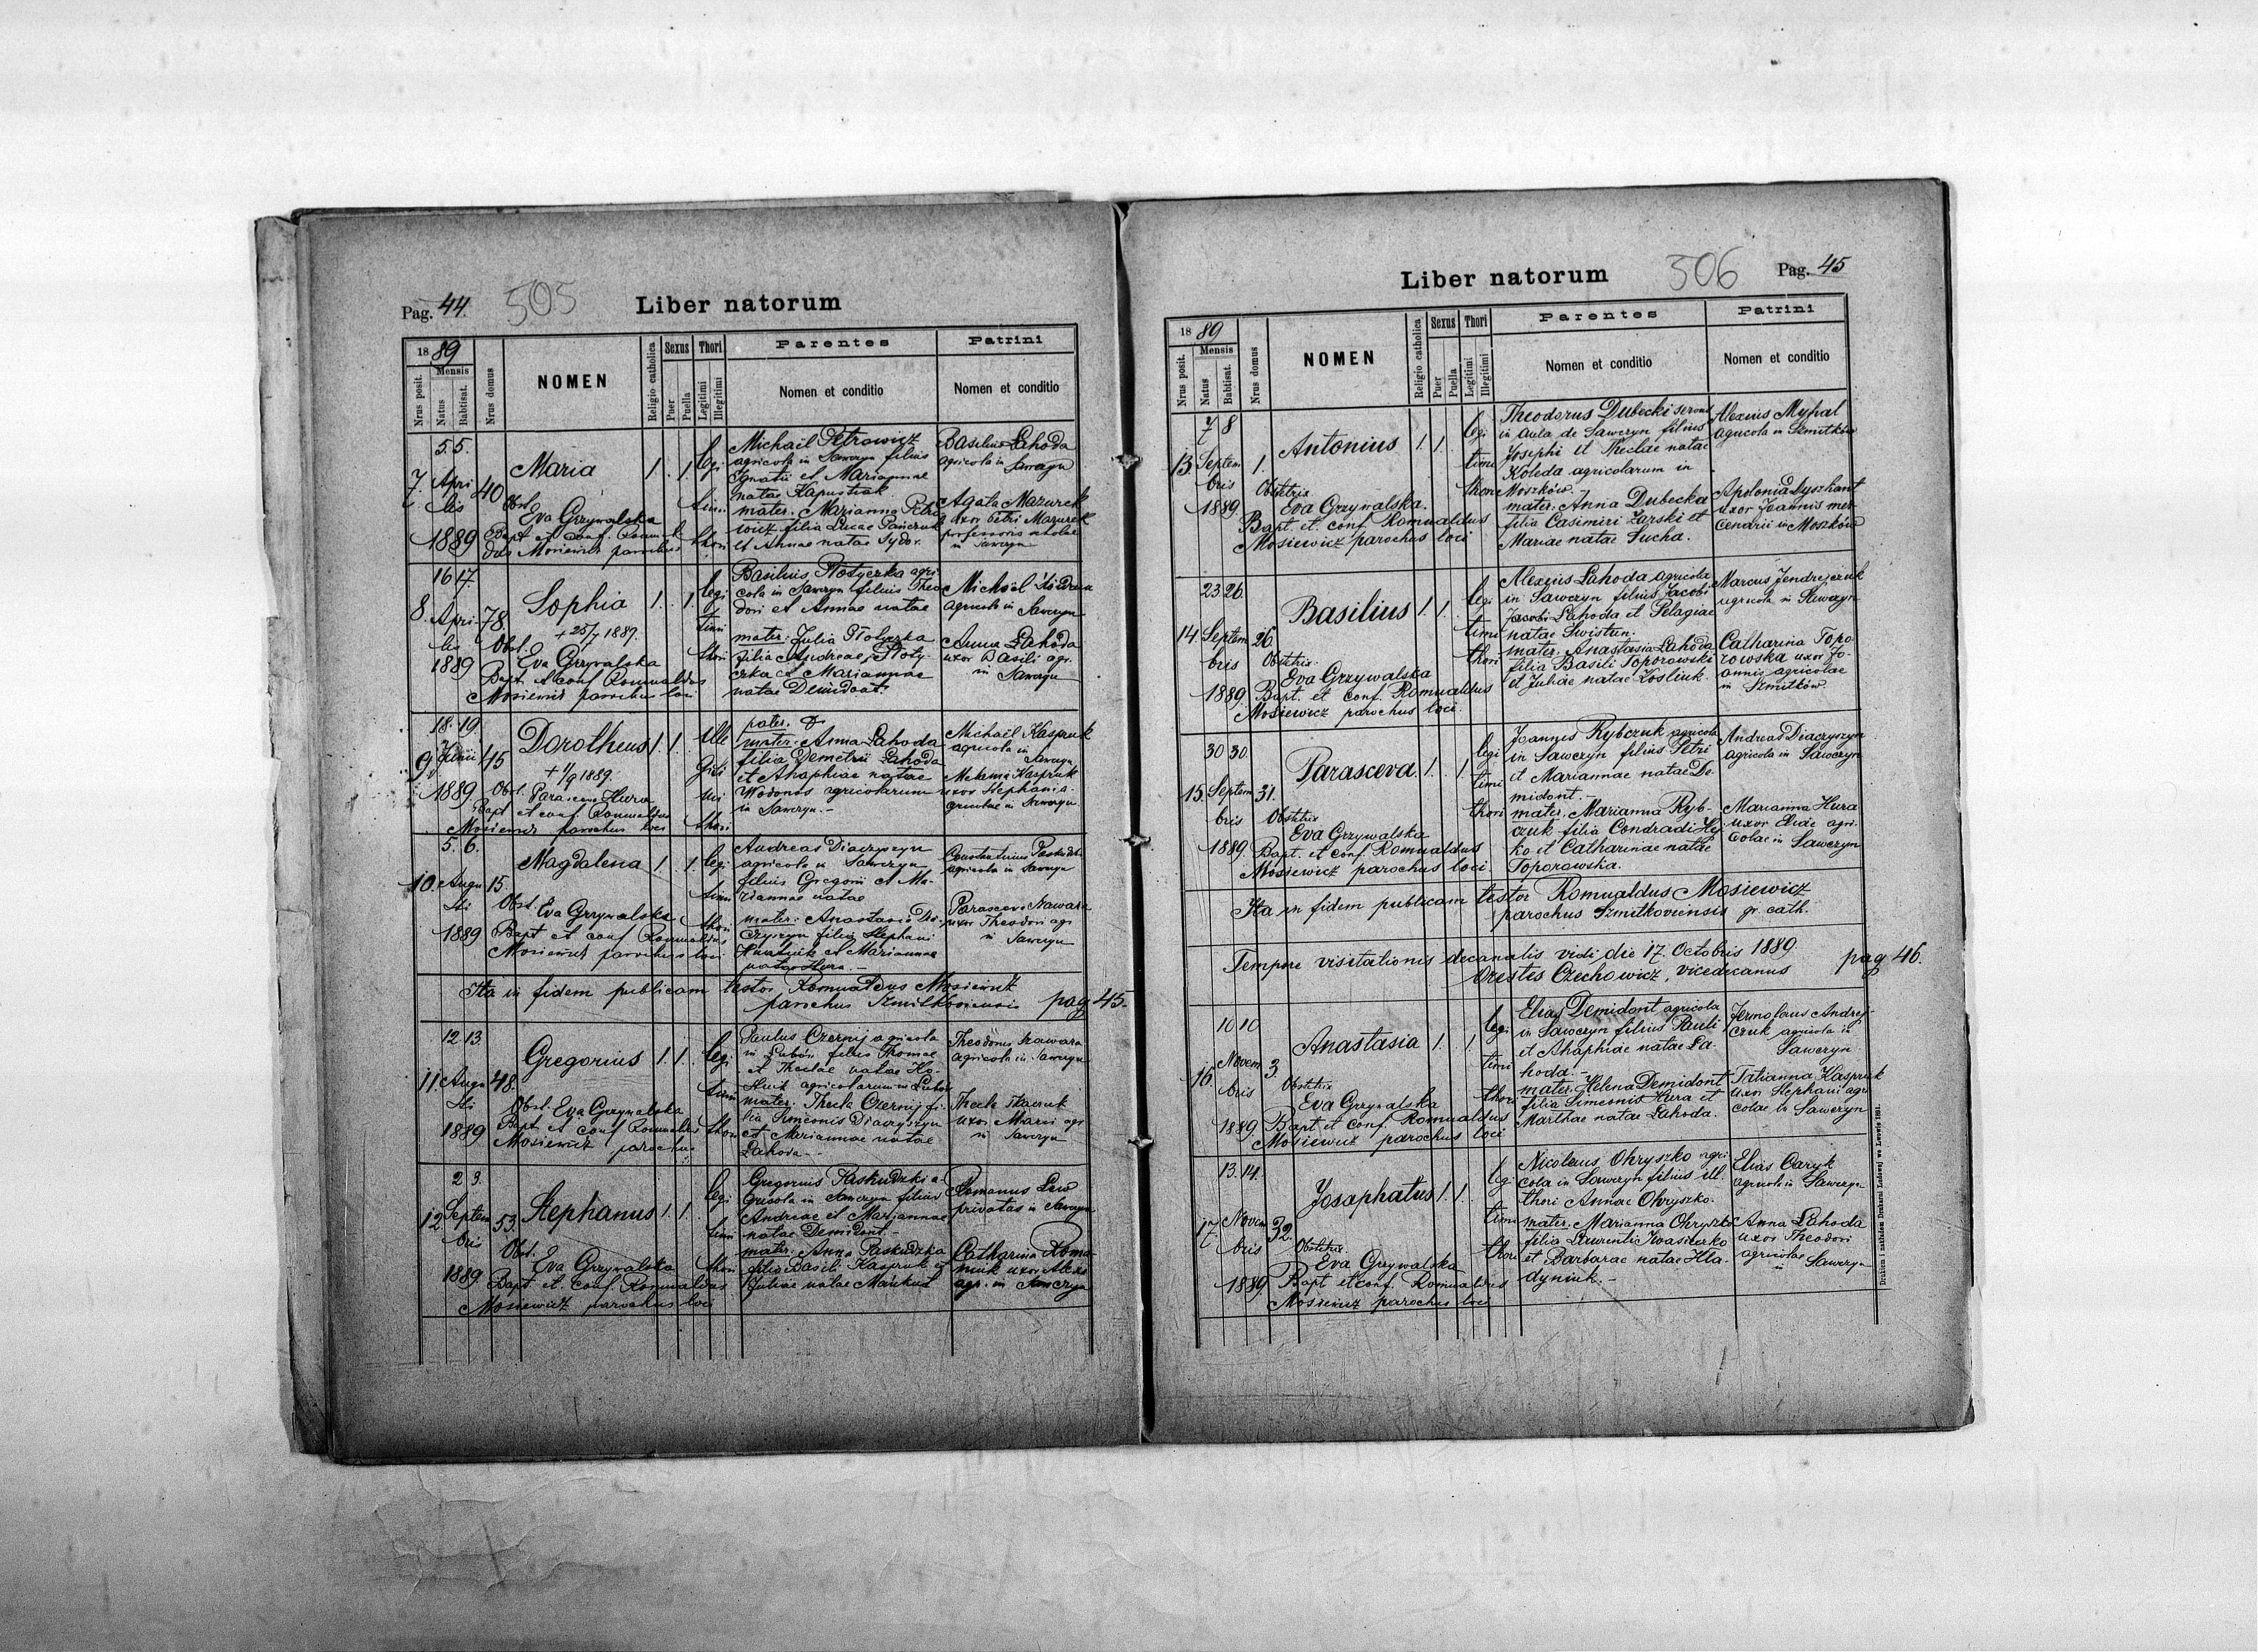 Pag. 44.
505
Liber natorum
18 89
Mensis
Nrus posit.
Natus
Babtisat.
Nrus domus
NOMEN
Religio catholica
Sexus
Puer
Puella
Thori
Legitimi
Illegitimi
Parentes
Nomen et conditio
Patrini
Nomen et conditio
7.
5. 5.
Apri
lis
1889
40
Maria
1. . 1.
legi
timi
thori
Obst.
Eva Grzywalska
Bapt et conf. Romual
dus Mosiewicz parochus
Michaël Petrowicz
agricola in Sawczyn filius
Ignatii et Mariannae
natae Kapustiak
mater: Marianna Petro
wicz filia Lucae Panczuk
et Annae natae Sydor.
Basilius Lahoda
agricola in Sawczyn
Agata Mazurek
uxor Petri Mazurek
professoris scholae
in Sawczyn
8.
16 17.
Apri
lis
1889
78.
Sophia
+ 25/7 1889.
1. . 1.
legi
timi
thori
Obst.
Eva Grzywalska
Bapt et conf Romualdus
Mosiewicz parochus loci
Basilius Płotyczka agri
cola in Sawczyn filius Theo
dori et Annae natae
mater: Julia Płotyczka
filia Andreae Płoty
czka et Mariannae
natae Demidont.
Michaël
agricola in Sawczyn
Anna Lahoda
uxor Basili agr.
in Sawczyn
9.
18. 19.
Julii
1889
45
Dorotheus
+ 1/9 1889.
1. 1.
ille
giti
mi
thori
Obst. Parasceva Hura
Bapt et conf. Romualdus
Mosiewicz parochus loci
pater.
mater: Anna Lahoda
filia Demetrii Lahoda
et Ahaphiae natae
Wodonos agricolarum
in Sawczyn. -
Michaël Kaspruk
agricola in
Sawczyn
Kaspruk
uxor Stephani a
gricolae in Sawczyn
10.
5. 6.
Augu
sti
1889
15
Magdalena
1. 1.
legi
timi
thori
Obst. Eva Grzywalska
Bapt et conf Romualdus
Mosiewicz parochus loci
Andreas Diaczyszyn
agricola in Sawczyn
filius Gregorii et Ma-
riannae natae
mater: Anastasia Dia
czyszyn filia Stephani
Hnatiuk et Mariannae
natae Hura. -
Constantinus
agricola in Sawczyn
Parasceva Nawara
uxor Theodori agr
in Sawczyn
Ita in fidem publicam testor Romualdus Mosiewicz
parochus Szmitkoviensis pag 45.
11.
12 13.
Augu
sti
1889
48.
Gregorius
1. 1.
legi
timi
thori
Obst. Eva Grzywalska
Bapt et conf Romualdus
Mosiewicz parochus
Paulus Czernij agricola
in Lubów filius Thomae
et Theclae natae Ko-
agricolarum in Lubów
mater: Thecla Czernij fi-
lia Simeonis Diaczyszyn
et Mariannae natae
Lahoda -
Theodorus Nawara
agricola in Sawczyn
Thecla Tkaczuk
uxor Marci agr
in Sawczyn
12.
2 3.
Septem
bris
1889
53.
Stephanus
1. 1.
legi
timi
thori
Obst.
Eva Grzywalska
Bapt. et conf. Romualdus
Mosiewicz parochus loci
Gregorius Paskudzki a-
gricola in Sawczyn filius
Andreae et Mariannae
natae Demidont. -
mater: Anna Paskudzka
filia Basili Kaspruk et
Juliae natae Mankut
Romanus Lew
privatus in Sawczyn
Catharina Roma
niuk uxor Alexii
agr. in Sawczyn
506
Liber natorum
Pag. 45
18 89
Mensis
Nrus posit.
Natus
Babtisat.
Nrus domus
NOMEN
Religio catholica
Sexus
Puer
Puella
Thori
Legitimi
Illegitimi
Parentes
Nomen et conditio
Patrini
Nomen et conditio
13
7 8
Septem
bris
1889
1.
Antonius
1. 1.
legi
timi
thori
Obstetrix
Eva Grzywalska.
Bapt. et. conf Romualdus
Mosiewicz parochus loci
Theodorus Dubecki servus
in aula de Sawczyn filius
Josephi et Theclae natae
Koleda agricolarum in
Moszków.
mater: Anna Dubecka
filia Casimiri Zarski et
Mariae natae Sucha.
Alexius Myhal
agricola in Szmitków
Apolonia Dyszkant
uxor Joannis mer
cenarii in Moszków
14.
23 26.
Septem
bris
1889.
26.
Basilius
1. 1.
legi
timi
thori
Obstetrix
Eva Grzywalska
Bapt. et conf. Romualdus
Mosiewicz parochus loci.
Alexius Lahoda agricola
in Sawczyn filius Jacobi
Jacobi Lahoda et Pelagiae
natae Swistun.
mater: Anastasia Lahoda
filia Basili Toporowski
et Juliae natae Kosliuk.
Marcus Jendrejczuk
agricola in Sawczyn
Catharina Topo
rowska uxor Jo-
annis agricolae
in Szmitków.
15.
30 30.
Septem
bris
1889.
31.
Parasceva
1. . 1.
legi
timi
thori
Obstetrix
Eva Grzywalska
Bapt. et conf. Romualdus
Mosiewicz parochus loci.
Joannes Rybczuk agricola
in Sawczyn filius Petri
et Mariannae natae De
midont. -
mater: Marianna Ryb-
czuk filia Condradi Hej
ko et Catharinae natae
Toporowska.
Andreas Diaczyszyn
agricola in Sawczyn
Marianna Hura
uxor Eliae agri
colae in Sawczyn
Ita in fidem publicam testor Romualdus Mosiewicz
parochus Szmitkoviensis gr. cath.
Tempore visitationis decanalis vidi die 17. Octobris 1889
Orestes Czechowicz, vicedecanus pag 46.
16.
10 10
Novem
bris
1889
3
Anastasia
1. . 1.
legi
timi
thori
Obstetrix
Eva Grzywalska
Bapt et conf. Romualdus
Mosiewicz parochus loci
Elias Demidont agricola
in Sawczyn filius Pauli
et Ahaphiae natae La-
hoda. -
mater: Helena Demidont
filia Simeonis Hura et
Marthae natae Lahoda.
Jermolaus Andrej-
czuk agricola in
Sawczyn
Tatianna Kaspruk
uxor Stephani agri
colae in Sawczyn
17.
13. 14.
Novem
bris
1889
32.
Josaphatus
1. 1.
legi
timi
thori
Obstetrix
Eva Grzywalska
Bapt et conf. Romualdus
Mosiewicz parochus loci
Nicolaus Ohryszko agri
cola in Sawczyn filius ill.
thori Annae Ohryszko.
mater: Marianna Ohryszko
filia Laurentii Kwasienko
et Barbarae natae Hla-
dyniuk. -
Elias Caryk
agricola in Sawczyn
Anna Lahoda
uxor Theodori
agricolae
in Sawczyn
Drukiem i nakładem Drukarni Ludowej we Lwowie 1881.